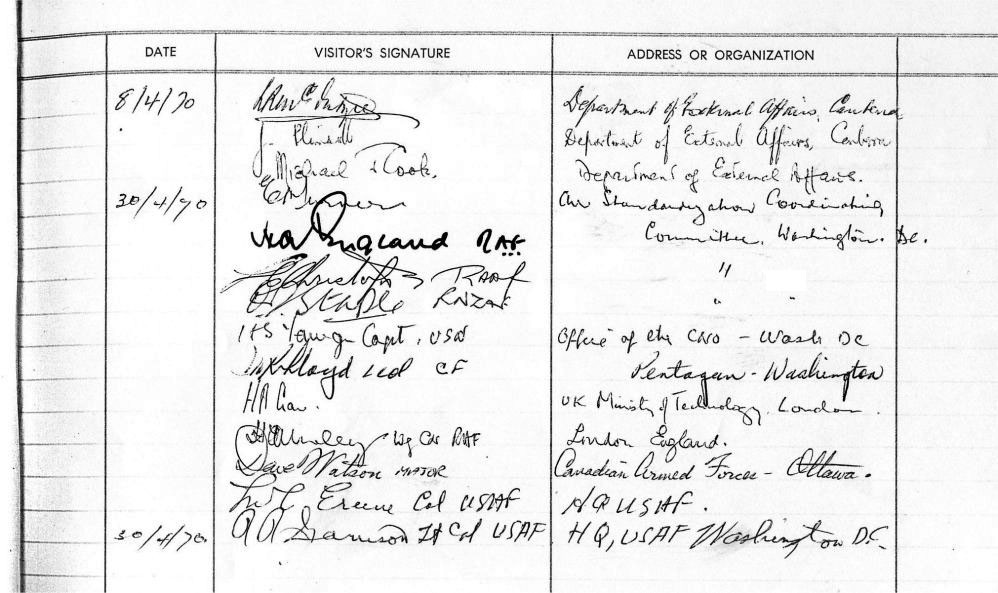 DATE VISITOR'S SIGNATURE ADDRESS OR ORGANIZATION
8/4/70 Department of External Affairs, Canberra
J. Plimsoll Department of External Affairs, Canberra
Michael J Cook. Department of External Affairs.
30/4/70 Air Standardization Coordinating
England RAF Committee, Washington. DC.
RAAF "
STAPLE RNZAF " "
Capt. USN Office of the CNO - Wash DC
Lloyd CF Pentagon - Washington
UK Ministry of Technology, London.
Wg Cdr RAF London England.
Dave Watson MAJOR Canadian Armed Forces - Ottawa.
Col USAF HQ USAF.
30/4/70 Garrison Lt Col USAF HQ, USAF Washington D.C.